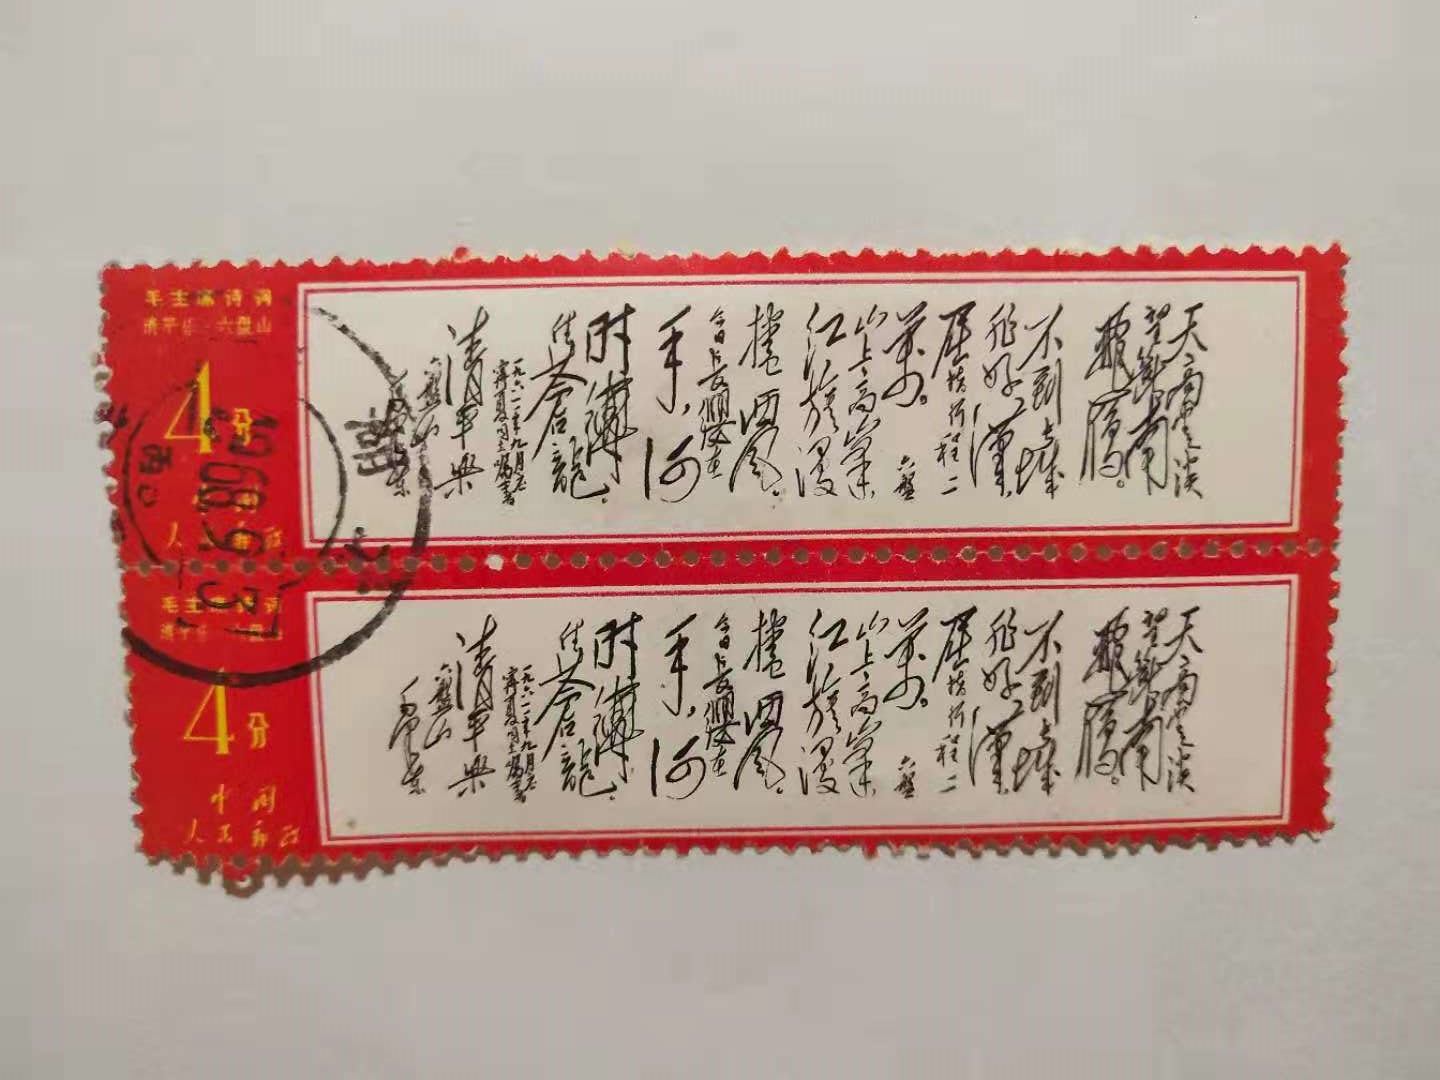 毛主席诗词
清平乐·六盘山
4分
中国
人民邮政
天高云淡
望断南
飞雁。
不到长城
非好汉
屈指行程二
万。
六盘
山上高峰
红旗漫
卷西风。
今日长缨在
手,何
时缚
住苍龙
一九六一年九月应
宁夏同志嘱书
清平乐
六盘山
毛泽东
毛主席诗词
清平乐·六盘山
4分
中国
人民邮政
天高云淡
望断南
飞雁。
不到长城
非好汉
屈指行程二
万。
六盘
山上高峰
红旗漫
卷西风。
今日长缨在
手,何
时缚
住苍龙
一九六一年九月应
宁夏同志嘱书
清平乐
六盘山
毛泽东